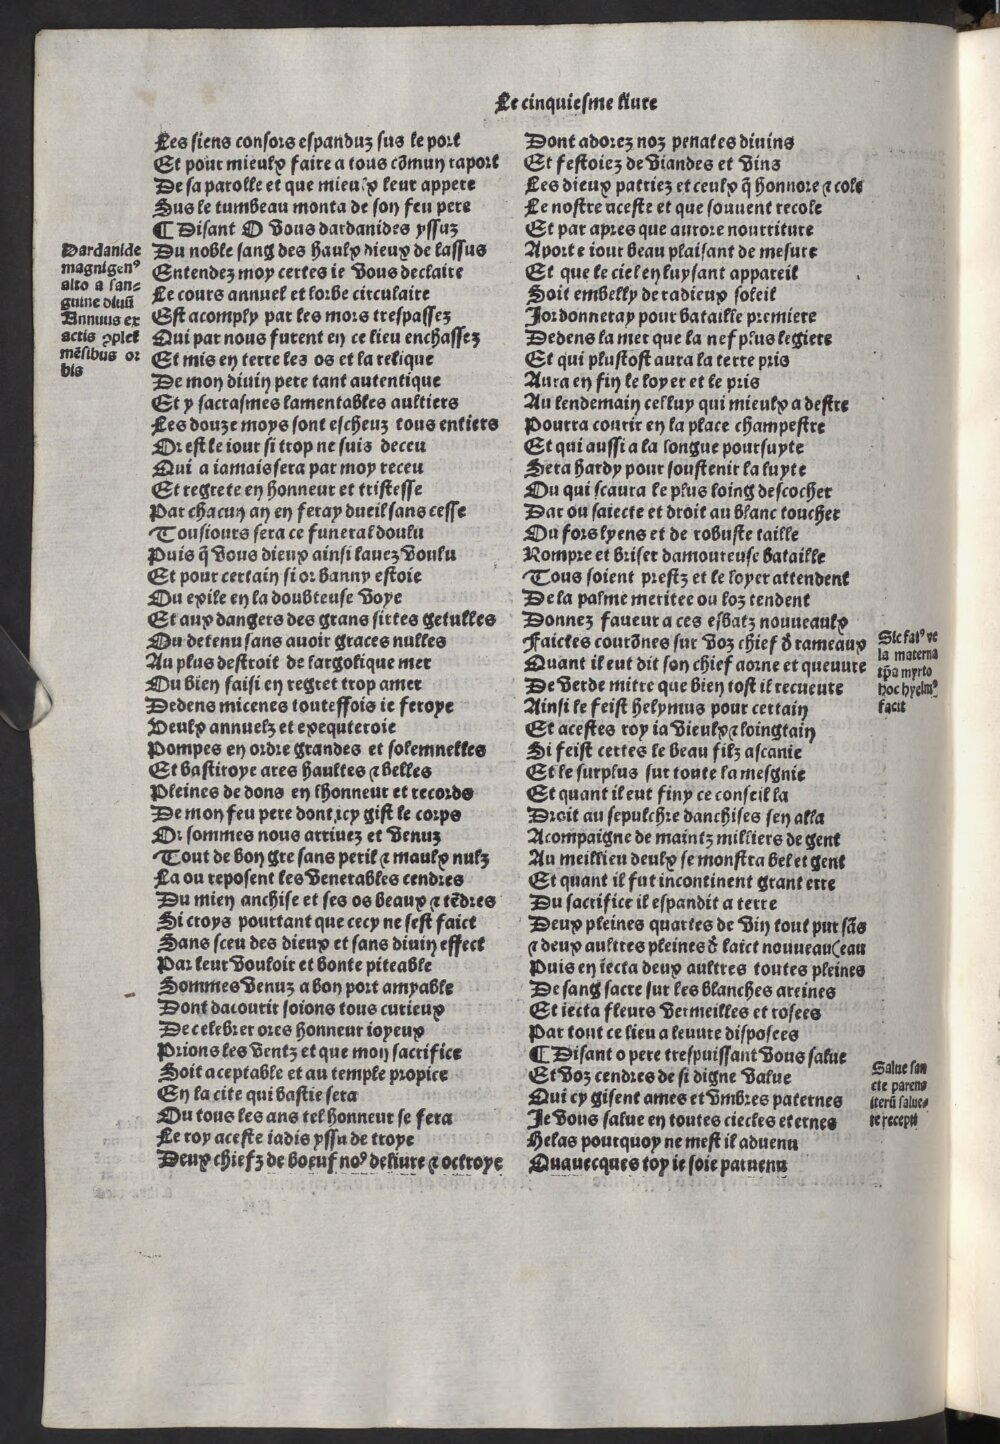 Le cinquiesme liure
Les siens consors espanduz sus le port
Et pour mieulx faire a tous cõmun raport
De sa parolle et que mieulx leur appere
Sus le tumbeau monta de son feu pere
¶ Disant O vous dardanides yssuz
Du noble sang des haulx dieux de lassus
Entendez moy certes ie vous declaire
Le cours annuel et lorbe circulaire
Est acomply par les mors trespassez
Qui par nous furent en ce lieu enchassez
Et mis en terre les os et la relique
De mon diuin pere tant autentique
Et y sacrasmes lamentables aultiers
Les douze moys sont escheuz tous entiers
Or est le iour si trop ne suis deceu
Qui a iamais sera par moy receu
Et regrete en honneur et tristesse
Par chacun an en feray dueil sans cesse
Tousiours sera ce funeral doulu
Puis q̃ vous dieux ainsi lauez voulu
Et pour certain si or banny estoie
Ou exile en la doubteuse voye
Et aux dangers des grans sirtes getulles
Ou detenu sans auoir graces nulles
Au plus destroit de largolique mer
Ou bien saisi en regret trop amer
Dedens micenes touteffois ie feroye
Veulx annuelz et exequteroie
Pompes en ordre grandes et solemnelles
Et bastiroye ares haultes ⁊ belles
Pleines de dons en lhonneur et records
De mon feu pere dont icy gist le corps
Or sommes nous arriuez et venuz
Tout de bon gre sans peril ⁊ maulx nulz
La ou reposent les venerables cendres
Du mien anchise et ses os beaux ⁊ tẽdres
Si croys pourtant que cecy ne sest faict
Sans sceu des dieux et sans diuin effect
Par leur vouloir et bonte piteable
Sommes venuz a bon port amyable
Dont dacourir soions tous curieux
De celebrer ores honneur ioyeux
Prions les ventz et que mon sacrifice
Soit aceptable et au temple propice
En la cite qui bastie sera
Ou tous les ans tel honneur se fera
Le roy aceste iadis yssu de troye
Deux chiefz de boeuf noꝰ deliure ⁊ octroye
Dardanide
magnigenꝰ
alto a san-
guine diuũ
Annuus ex
actis ꝯplet
mẽsibus or
bis
Dont adorez noz penates diuins
Et festoiez de viandes et vins
Les dieux patriez et ceulx q̃ honnore ⁊ cole
Le nostre aceste et que souuent recole
Et par apres que aurore nourriture
Aporte iour beau plaisant de mesure
Et que le ciel en luysant appareil
Soit embelly de radieux soleil
Jordonneray pour bataille premiere
Dedens la mer que la nef plus legiere
Et qui plustost aura la terre pris
Aura en fin le loyer et le pris
Au lendemain celluy qui mieulx a destre
Pourra courir en la place champestre
Et qui aussi a la longue poursuyte
Sera hardy pour soustenir la luyte
Ou qui scaura le plus loing descocher
Dar ou saiecte et droit au blanc toucher
Ou fors lyens et de robuste taille
Rompre et briser damoureuse bataille
Tous soient prestz et le loyer attendent
De la palme meritee ou loz tendent
Donnez faueur a ces esbatz nouueaulx
Faictes courõnes sur voz chief d̃ rameaux
Quant il eut dit son chief aorne et queuure
De verde mitre que bien tost il recueure
Ainsi le feist helymus pour certain
Et acestes roy ia vieulx ⁊ loingtain
Si feist certes le beau filz ascanie
Et le surplus sur toute la mesgnie
Et quant il eut finy ce conseil la
Droit au sepulchre danchises sen alla
Acompaigne de maintz milliers de gent
Au meillieu deulx se monstra bel et gent
Et quant il fut incontinent grant erre
Du sacrifice il espandit a terre
Deux pleines quartes de vin tout pur sãs
⁊ deux aultres pleines d̃ laict nouueau (eau
Puis en iecta deux aultres toutes pleines
De sang sacre sur les blanches areines
Et iecta fleurs vermeilles et rosees
Par tout ce lieu a leuure disposees
¶ Disant o pere trespuissant vous salue
Et voz cendres de si digne value
Qui cy gisent ames et vmbres paternes
Je vous salue en toutes ciecles eternes
Helas pourquoy ne mest il aduenu
Quauecques toy ie soie paruenu
Sic fatꝰ ve
la materna
tp̃a myrto
hoc hyelmꝰ
facit
Salue san
cte parens
iterũ salue-
te recepti